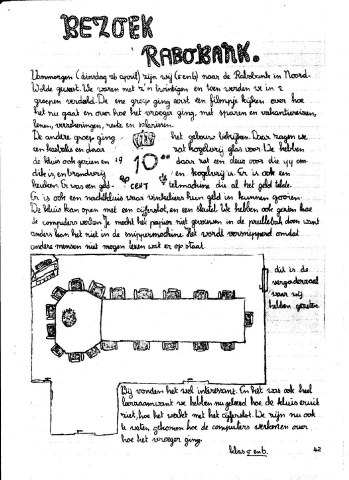 BEZOEK
RABOBANK.
Vanmorgen (dinsdag 26 april) zijn wij (5 en 6) naar de Rabobank in Noord-
Wolde geweest. We waren met z'n twintigen en toen werden we in 2
groepen verdeeld. De ene groep ging eerst een filmpje kijken over hoe
het nu gaat en over hoe het vroeger ging, met sparen en vakantiereizen,
lenen, verzekeringen, rente en
De andere groep ging
het gebouw bekijken. Daar zagen we
een kastreke en daar
wat kogelvrij glas voor. We hebben
de kluis ook gezien en
19 10.00
daar zat een deur voor die 44 cm
dik is, en brandvrij
en kogelvrij is. Er is ook een
keuken. Er was een geld-
CENT
telmachine die al het geld telde.
Er is ook een nachtkluis waar winkeliers hun geld in kunnen gooien.
De kluis kan open met een cijferslot, en een sleutel. We hebben ook gezien hoe
de computers werken. Je mocht het papier niet gooien in de prullebak dan want
anders kan het niet in de snippermachine. Het wordt versnipperd omdat
andere mensen niet mogen lezen wat er op staat.
dit is de
vergaderzaal
waar wij
hebben gezeten.
Wij vonden het wel interessant. En het was ook heel
leerzaam want we hebben nu geleerd hoe de kluis eruit
ziet, hoe het werkt met het cijferslot. De zijn nu ook
te weten gekomen hoe de computers werken en over
hoe het vroeger ging.
klas 5 en 6.
42